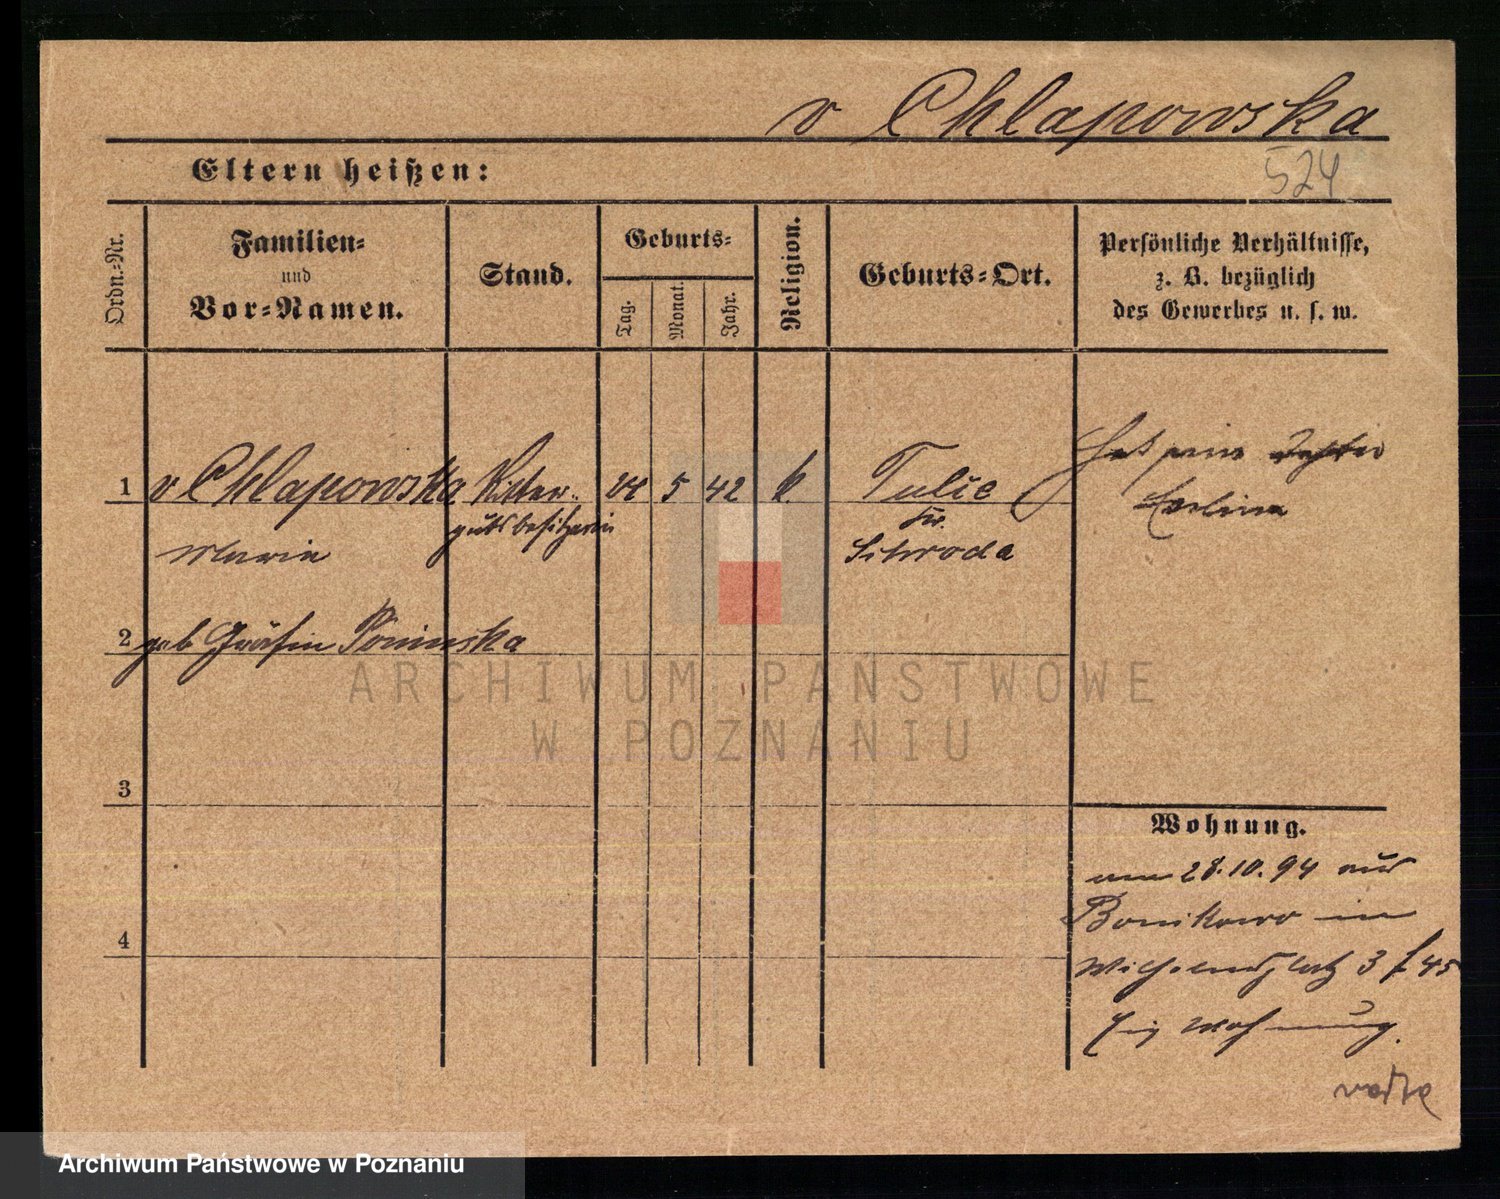 v Chlapowska
524
Eltern heißen:
Ordn.=Nr.
Familien=
und
Vor=Namen.
Stand.
Geburts=
Tag.
Monat.
Jahr.
Religion.
Geburts=Ort.
Persönliche Verhältnisse,
z. B. bezüglich
des Gewerbes u. s. w.
1 v Chlapowska Ritter= 5 42 k. Tulce
gutsbesitzerin Kr.
Maria Schroda
2 geb Gräfin Poninska
3
4
Wohnung.
28.10.94 aus
Bonikowo in
Wilhelmsplatz 3
Wohnung.
ARCHIWUM PAŃSTWOWE
W POZNANIU
Archiwum Państwowe w Poznaniu